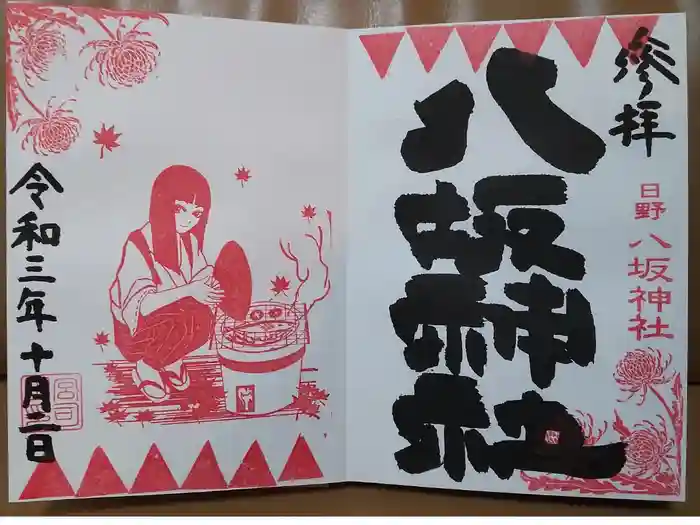 参拝
日野 八坂神社
八坂神社
令和三年十月二日